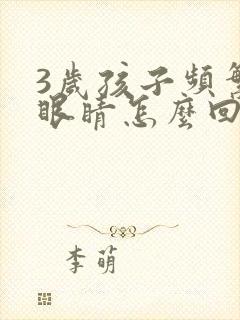 3歲孩子頻繁
眼睛怎麼回
李萌